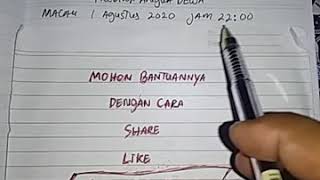 ANGKA DEWA
MACAU 1 AGUSTUS 2020 JAM 22:00
MOHON BANTUANNYA
DENGAN CARA
SHARE
LIKE